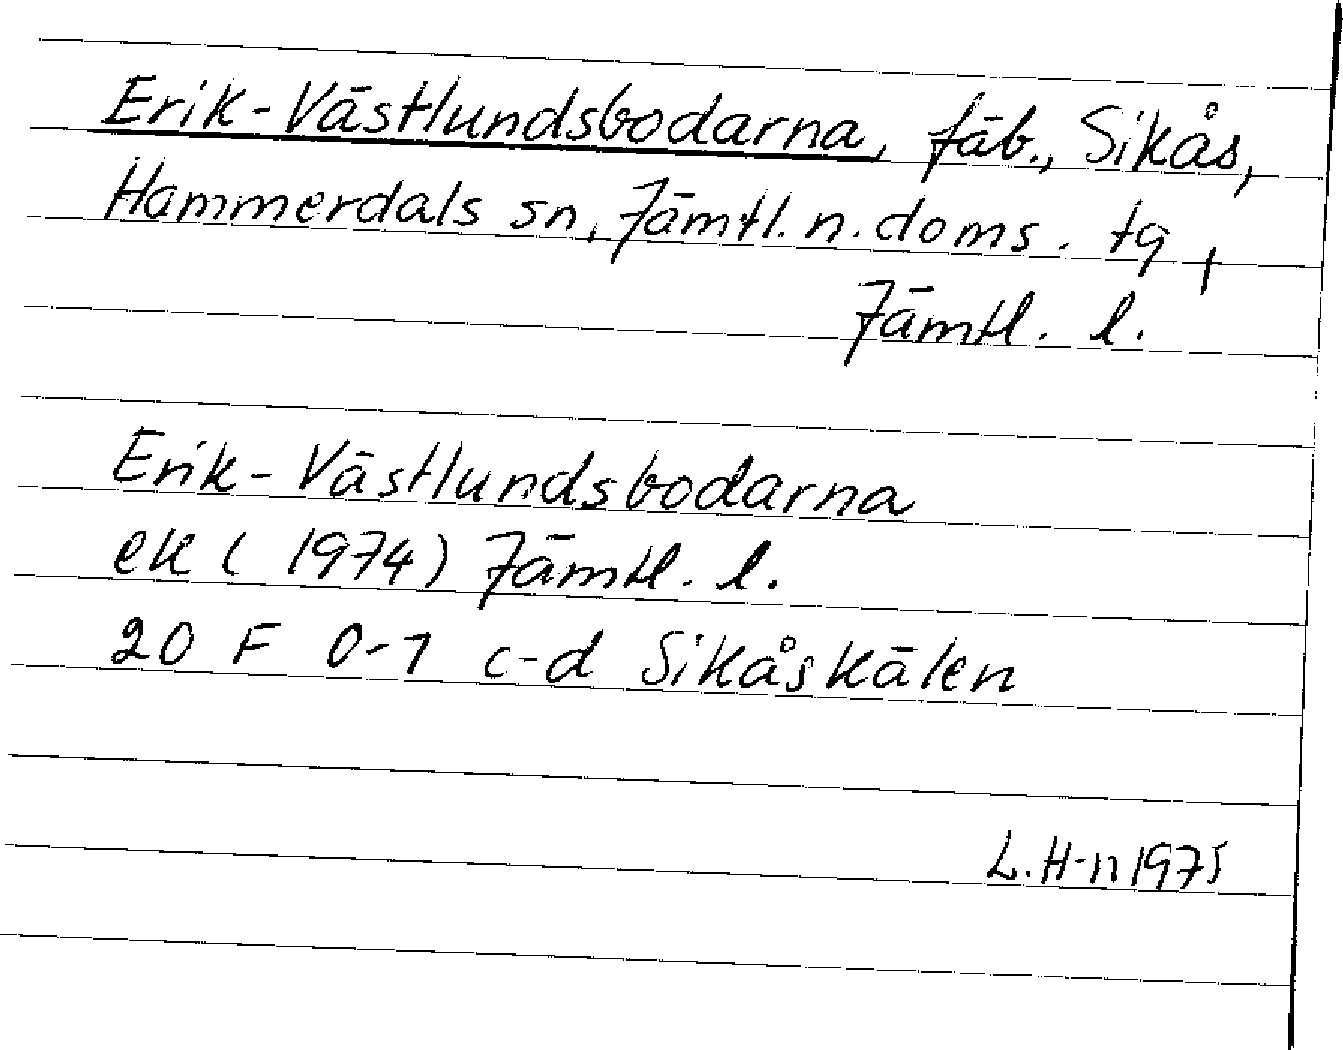 Erik-Västlundsbodarna, fäb., Sikås,
Hammerdals sn, Jämtl. n. doms. tg,
Jämtl. l.
Erik-Västlundsbodarna
ek (1974) Jämtl. l.
20 F 0-1 c-d Sikåskälen
L. H-n 1975